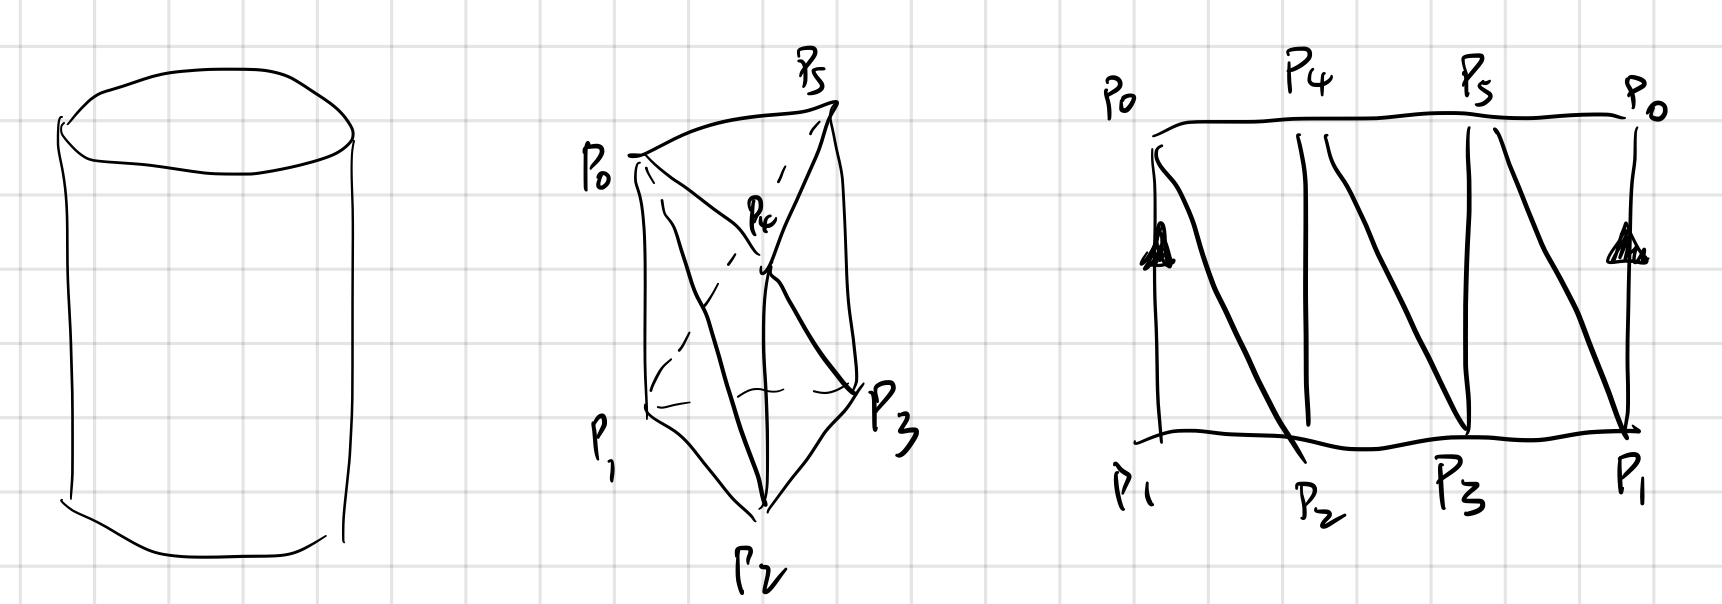 P5
P0
P4
P1
P3
P2
P0 P4 P5 P0
P1 P2 P3 P1